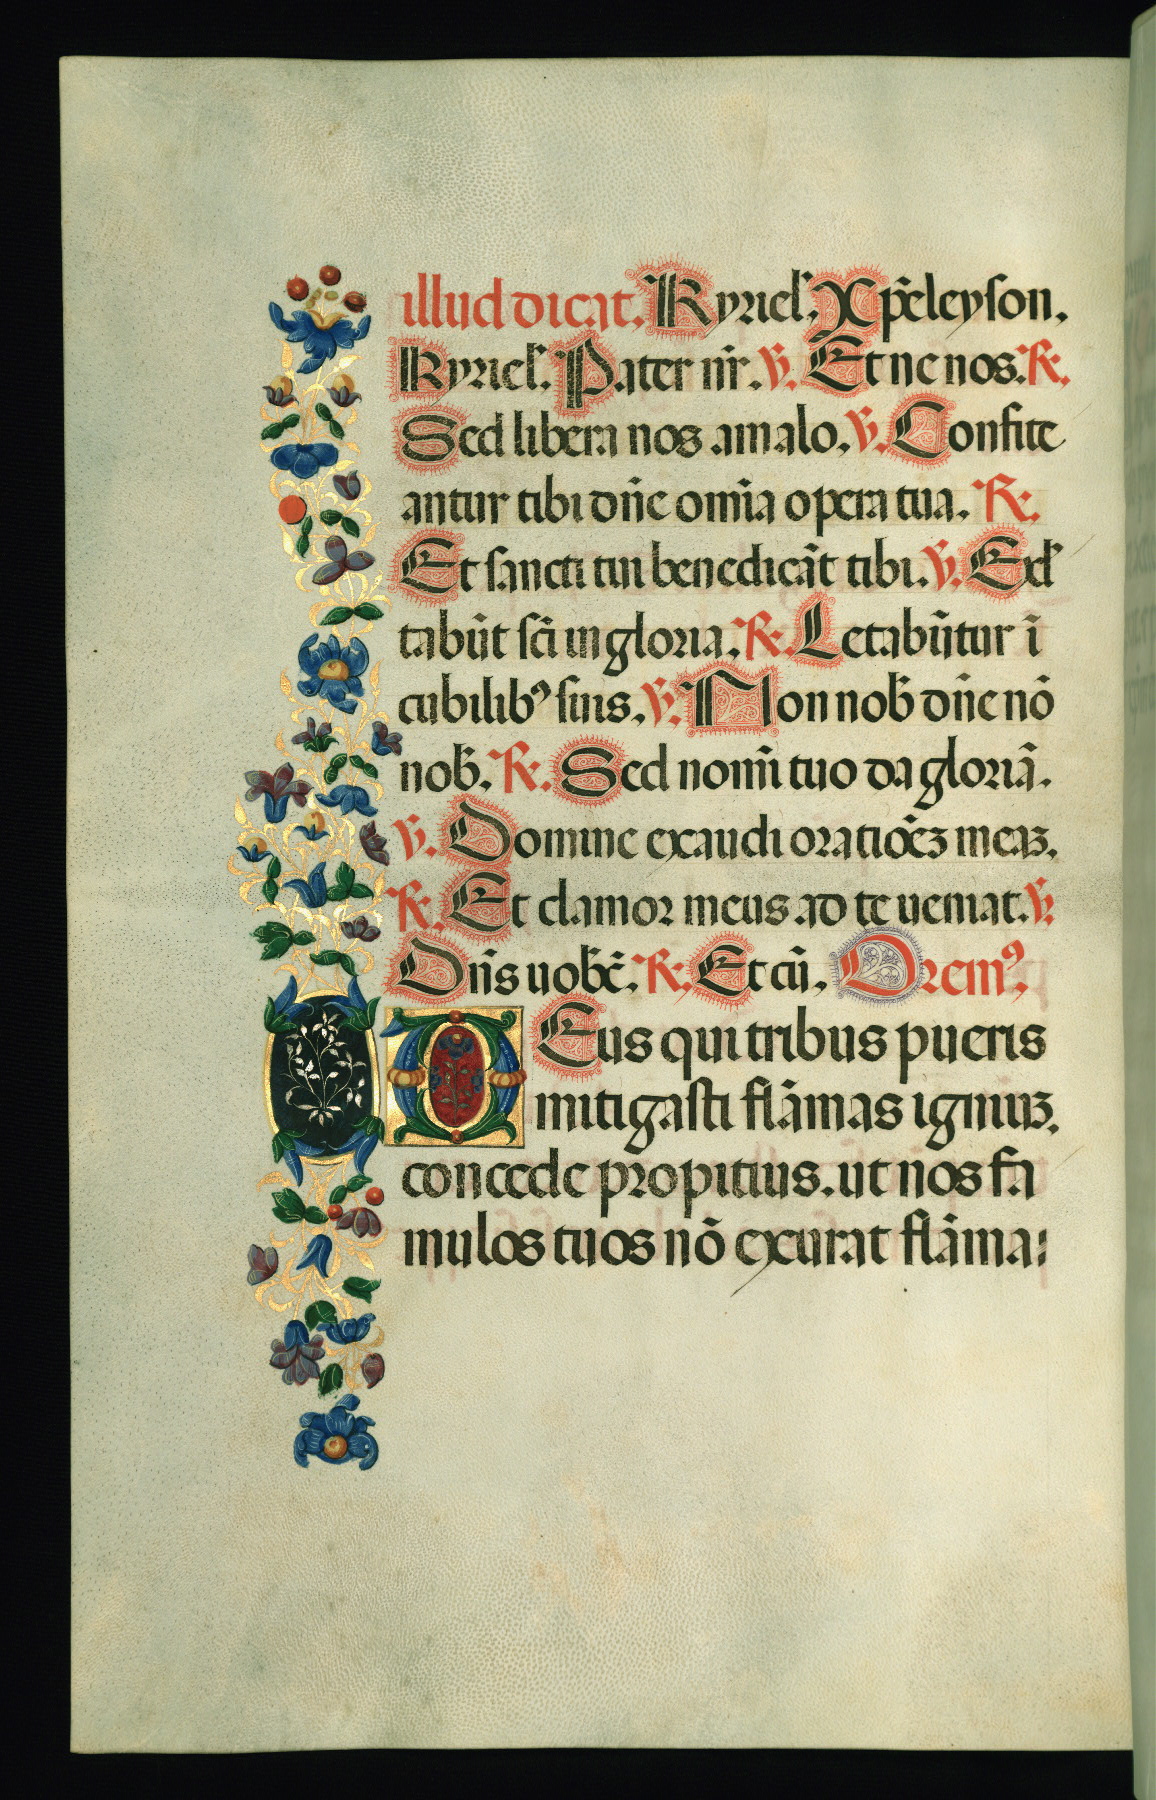 illud dicat. Kyriel̃. Xp̃eleyson.
Kyriel̃. Pater nr̃. ℣. Et ne nos. ℟.
Sed libera nos amalo. ℣. Confite
antur tibi dñe om̃ia opera tua. ℟.
Et sancti tui benedicãt tibi. ℣. Exl̃
tabũt sc̃i in gloria. ℟. Letabũtur ĩ
cubilibꝰ suis. ℣. Non nob̃ dñe nõ
nob̃. ℟. Sed nom̃i tuo da gloriã.
℣. Domine exaudi oratiõeꝫ meaꝫ.
℟. Et clamor meus ad te ueniat. ℣.
Dñs uobc̃. ℟. Et cũ. Oremꝰ.
Deus qui tribus pueris
mitigasti flãmas igniuꝫ.
concede propitius. ut nos fa
mulos tuos nõ exurat flãma: